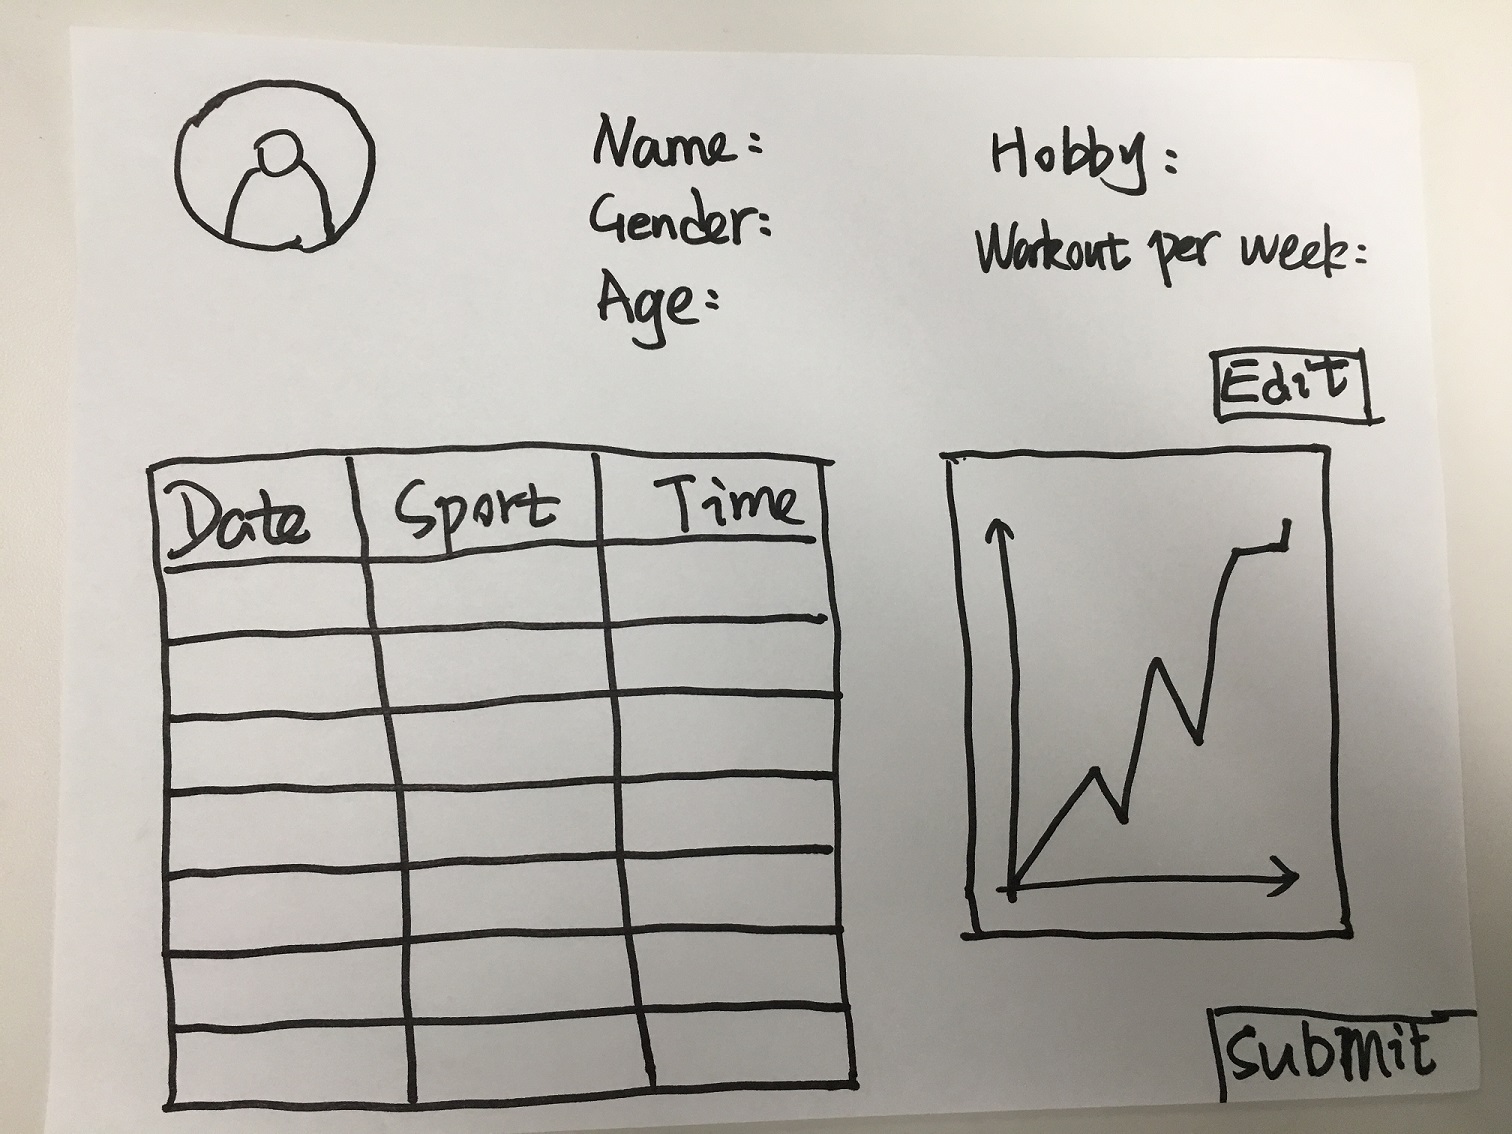 Name:
Gender:
Age:
Hobby:
Workout per week:
Edit
Date Sport Time
Submit